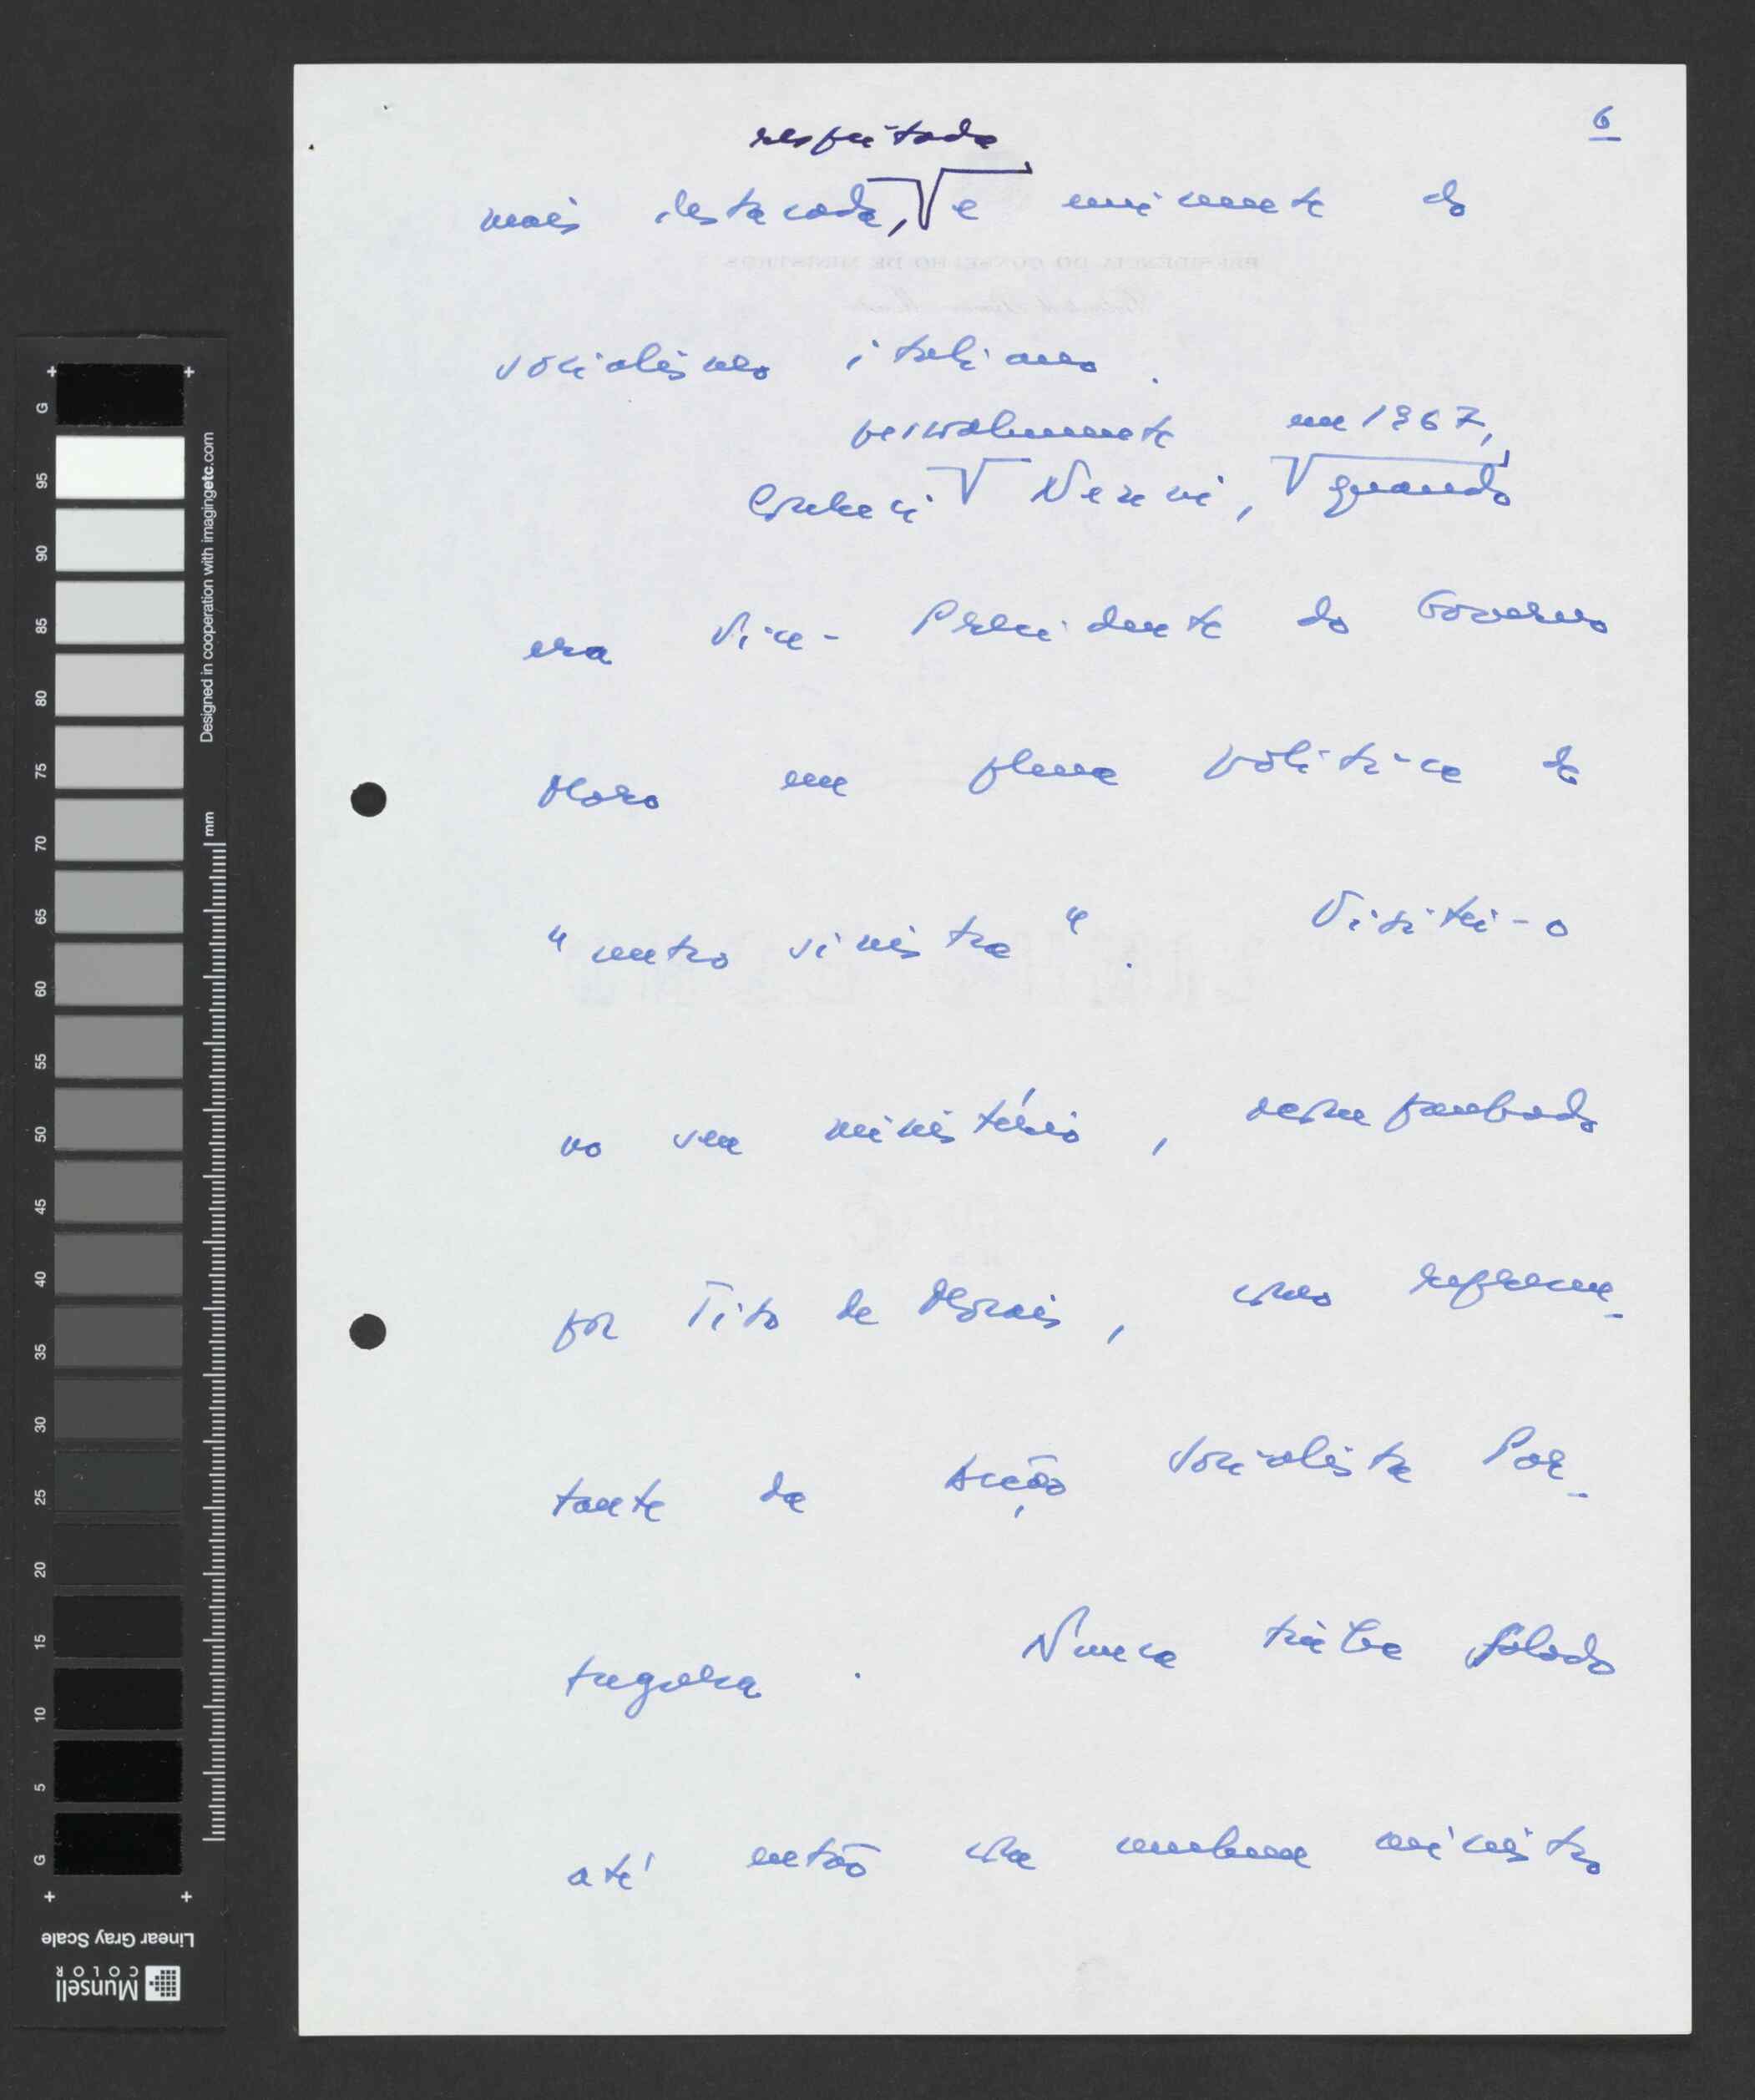 6
respeitada
mais destacada, e eminente do
socialismo italiano.
pessoalmente em 1967,
Conheci Nenni, quando
era Vice-Presidente do Governo
Moro em plena política de
"centro sinistra". Visitei-o
no seu ministério, acompanhado
por Tito de Morais, como represen-
tante da Acção Socialista Por-
tuguesa. Nunca tinha falado
até então com nenhum ministro
G
95
90
85
80
75
70
65
60
55
50
45
40
35
30
25
20
15
10
5
G
Designed in cooperation with imagingetc.com
mm
Linear Gray Scale
Munsell
COLOR